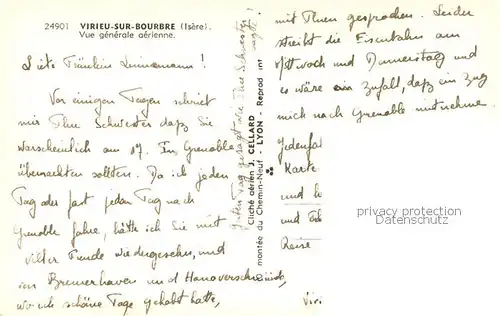 24901 VIRIEU-SUR-BOURBRE (Isère).
Vue générale aérienne.
Liebe Fräulein
Vor einigen Tagen schrieb
mir Ihre Schwester daß Sie
warscheinlich am 17. In Grenoble
übernachten sollten. Da ich jeden
Tag oder fast jeden Tag nach
Grenoble fahre, hätte ich Sie mit
vieler Freude wiedergesehn, und
von Bremerhaven und Hanover
wo ich schöne Tage gehabt hatte,
Guten Tag gesagt die Ihre Schwester
Cliché aérien J. CELLARD
montée du Chemin-Neuf - LYON - Reprod int
mit Ihnen gesprochen. Leider
streibt die Eisenbahn am
Mittwoch und Donnerstag und
es wäre ein Zufall, daß ein Zug
mich nach Grenoble mitnehme.
Jedenfal
Karte
und
und
Reise
Viri
privacy protection
Datenschutz